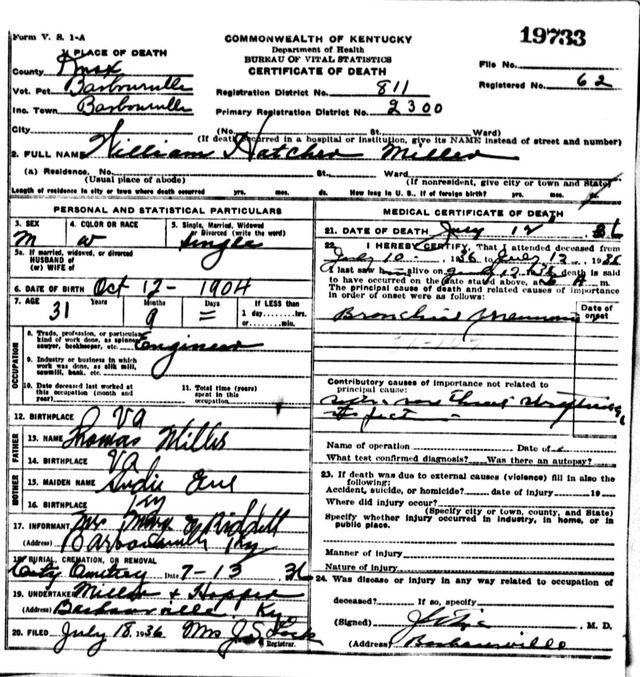 Form V. S. 1-A
COMMONWEALTH OF KENTUCKY
Department of Health
BUREAU OF VITAL STATISTICS
CERTIFICATE OF DEATH
19733
File No.
Registered No. 62
1. PLACE OF DEATH
County Knox
Vot. Pct. Barbourville
Inc. Town Barbourville
Registration District No. 811
Primary Registration District No. 2300
City (No. St. Ward)
(If death occurred in a hospital or institution, give its NAME instead of street and number)
2. FULL NAME William Hatcher Miller
(a) Residence. No. St. Ward
(Usual place of abode) (If nonresident, give city or town and State)
Length of residence in city or town where death occurred yrs. mos. ds. How long in U. S., if of foreign birth? yrs. mos. ds.
PERSONAL AND STATISTICAL PARTICULARS
3. SEX M
4. COLOR OR RACE W
5. Single, Married, Widowed or Divorced (write the word) Single
5a. If married, widowed, or divorced
HUSBAND of
(or) WIFE of
6. DATE OF BIRTH Oct 12 - 1904
7. AGE 31 Years 9 Months Days
If LESS than
1 day, hrs.
or min.
OCCUPATION
8. Trade, profession, or particular kind of work done, as spinner, sawyer, bookkeeper, etc. Engineer
9. Industry or business in which work was done, as silk mill, sawmill, bank, etc.
10. Date deceased last worked at this occupation (month and year)
11. Total time (years) spent in this occupation
12. BIRTHPLACE VA
FATHER
13. NAME Thomas Miller
14. BIRTHPLACE VA
MOTHER
15. MAIDEN NAME
16. BIRTHPLACE Ky
17. INFORMANT Mrs Mary Riddell
(Address) Barbourville Ky
18. BURIAL, CREMATION, OR REMOVAL
City Date 7-13 36
19. UNDERTAKER Miller & Hopper
(Address) Barbourville, Ky
20. FILED July 18, 1936 Mrs J.S.
Registrar.
MEDICAL CERTIFICATE OF DEATH
21. DATE OF DEATH July 12 36
22. I HEREBY CERTIFY, That I attended deceased from
July 10, 1936 to July 12, 1936
I last saw alive on 12, 1936 death is said
to have occurred on the date stated above, at m.
The principal cause of death and related causes of importance
in order of onset were as follows:
Date of onset
Bronchial pneumonia
Contributory causes of importance not related to
principal cause:
Name of operation Date of
What test confirmed diagnosis? Was there an autopsy?
23. If death was due to external causes (violence) fill in also the
following:
Accident, suicide, or homicide? date of injury 19
Where did injury occur?
(Specify city or town, county, and State)
Specify whether injury occurred in industry, in home, or in
public place.
Manner of injury
Nature of injury
24. Was disease or injury in any way related to occupation of
deceased? If so, specify
(Signed) M. D.
(Address) Barbourville